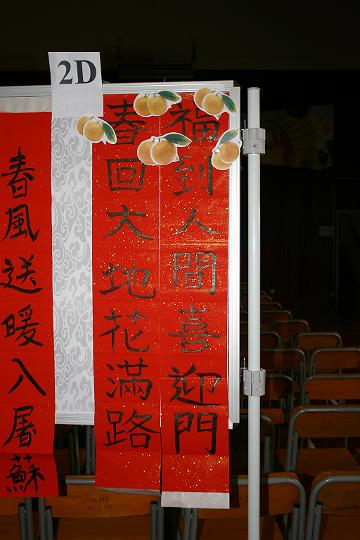 2D
福到人間喜迎門
春回大地花滿路
春風送暖入屠蘇